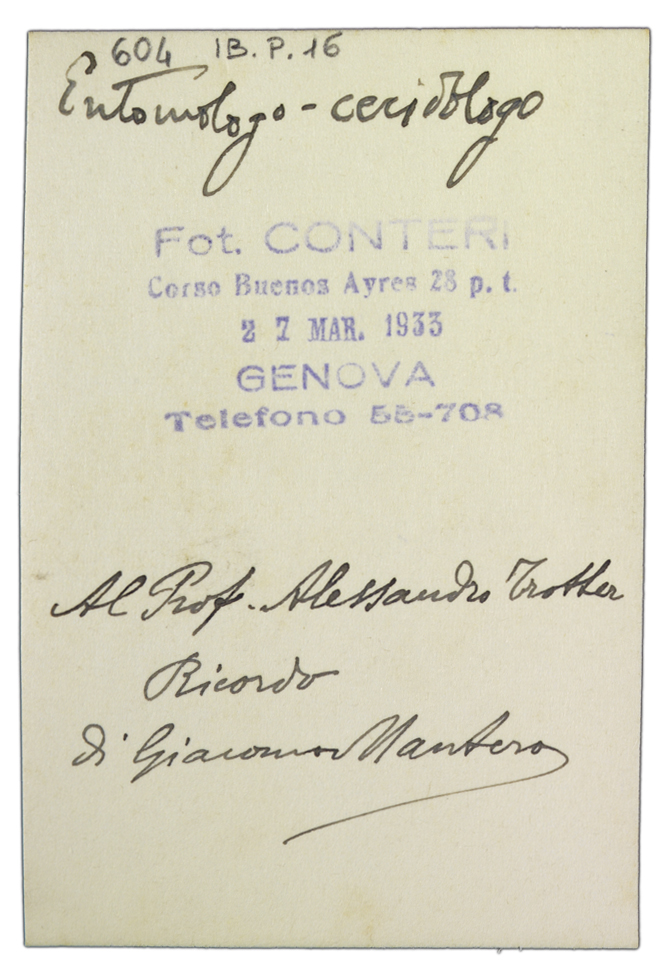 604 IB. P. 16
Entomologo - cecidologo
Fot. CONTERI
Corso Buenos Ayres 28 p. t.
27 MAR. 1933
GENOVA
Telefono 55-708
Al Prof. Alessandro Trotter
Ricordo
di Giacomo Mantero